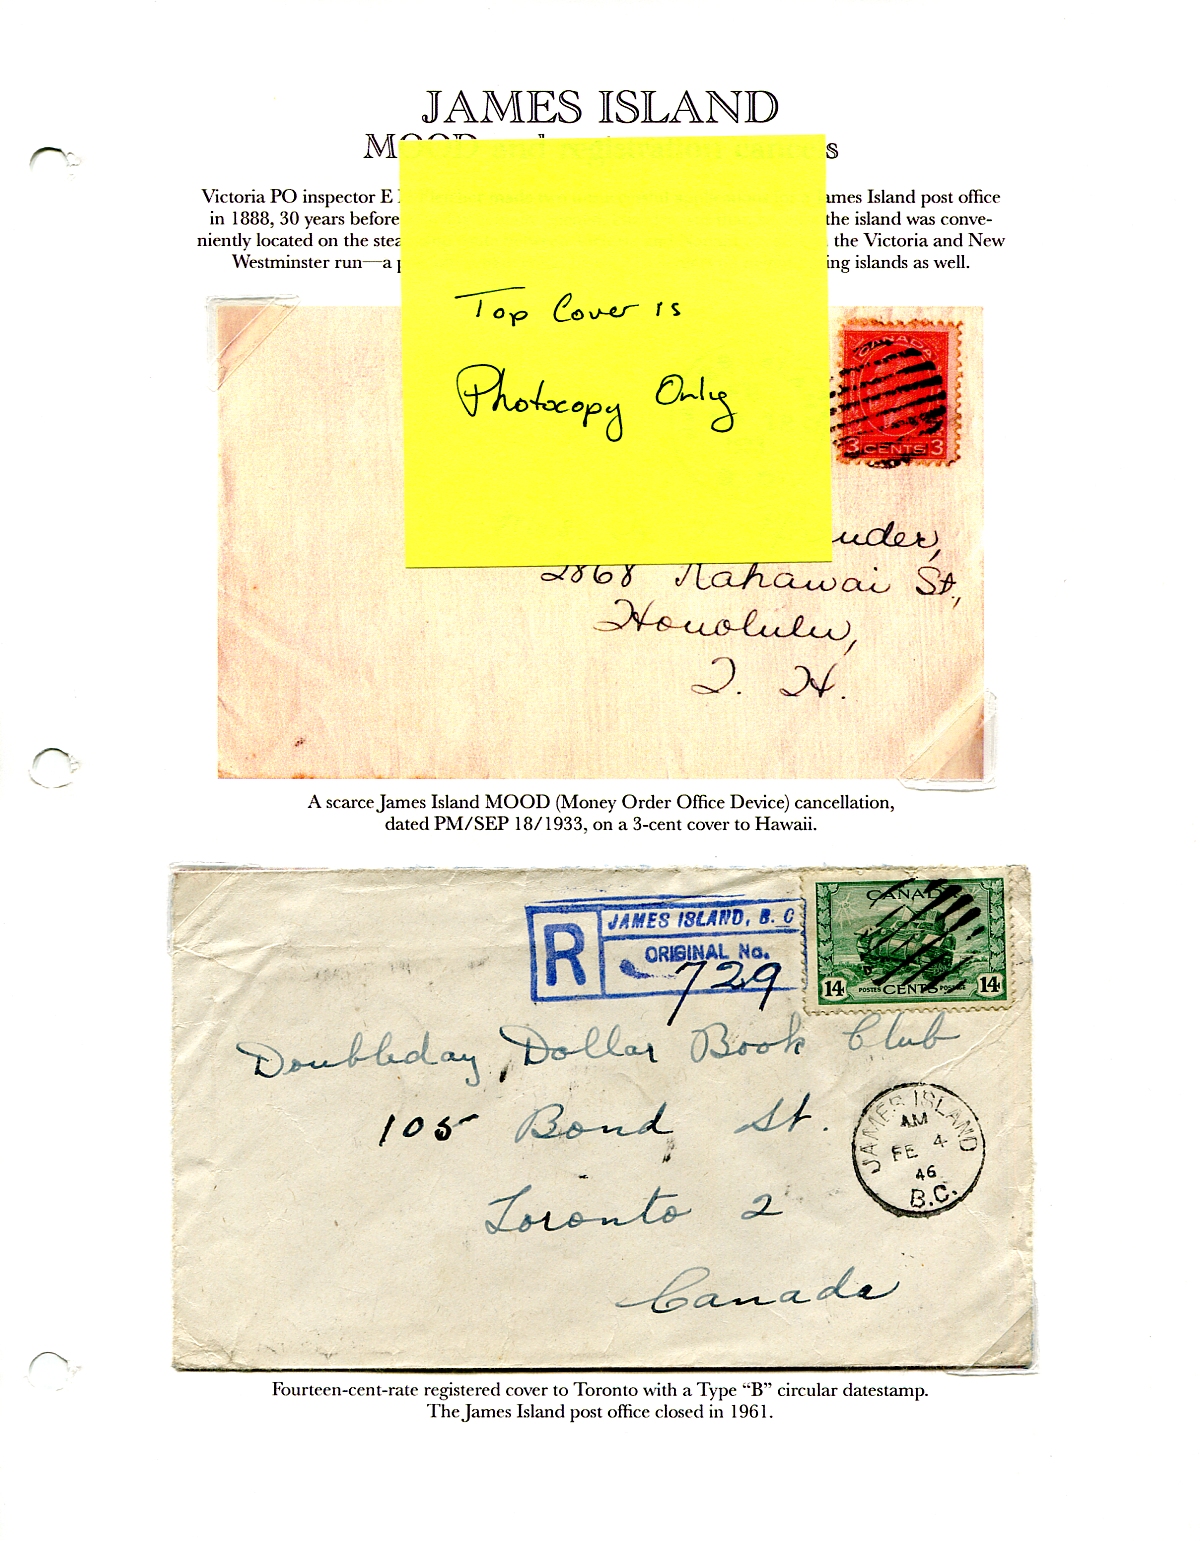 JAMES ISLAND
MOOD and registration cancels
Victoria PO inspector E
ames Island post office
in 1888, 30 years before
the island was conve-
niently located on the stea
the Victoria and New
Westminster run—a p
ing islands as well.
Top Cover is
Photocopy Only
CANADA
3 CENTS 3
uder,
2868 Kahawai St.,
Honolulu,
T. H.
A scarce James Island MOOD (Money Order Office Device) cancellation,
dated PM/SEP 18/1933, on a 3-cent cover to Hawaii.
R
JAMES ISLAND, B. C
ORIGINAL No.
729
CANADA
14 POSTES CENTS POSTAGE 14
Doubleday Dollar Book Club
105 Bond St.
Toronto 2
Canada
JAMES ISLAND
AM
FE 4
46
B.C.
Fourteen-cent-rate registered cover to Toronto with a Type “B” circular datestamp.
The James Island post office closed in 1961.